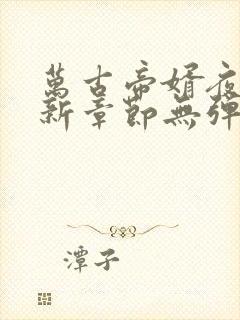 萬古帝婿夜
新章節無彈
潭子